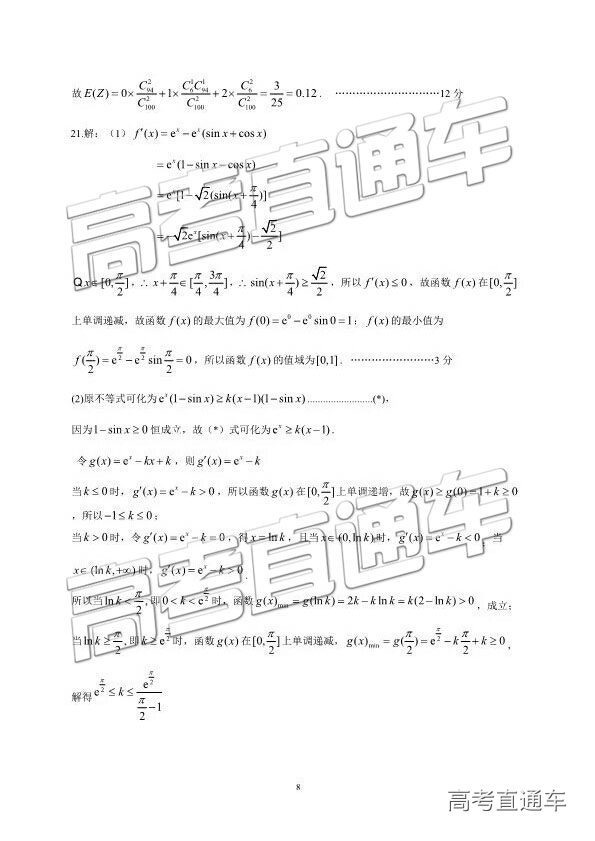 故E(Z)=0×C₉₄²/C₁₀₀²+1×C₆¹C₉₄¹/C₁₀₀²+2×C₆²/C₁₀₀²=3/25=0.12. ……………………………12 分
21.解：（1） f′(x)=eˣ−eˣ(sin x+cos x)
=eˣ(1−sin x−cos x)
=eˣ[1−√2(sin(x+π/4)]
=−√2eˣ[sin(x+π/4)−√2/2]
Q x∈[0,π/2]，∴ x+π/4∈[π/4,3π/4]，∴ sin(x+π/4)≥√2/2，所以 f′(x)≤0，故函数 f(x)在[0,π/2]
上单调递减，故函数 f(x)的最大值为 f(0)=e⁰−e⁰sin 0=1；f(x)的最小值为
f(π/2)=e^(π/2)−e^(π/2)sin π/2=0，所以函数 f(x)的值域为[0,1]. ……………………3 分
(2)原不等式可化为eˣ(1−sin x)≥k(x−1)(1−sin x)........................(*)，
因为1−sin x≥0恒成立，故（*）式可化为eˣ≥k(x−1).
令g(x)=eˣ−kx+k，则g′(x)=eˣ−k
当k≤0时，g′(x)=eˣ−k>0，所以函数g(x)在[0,π/2]上单调递增，故g(x)≥g(0)=1+k≥0
，所以−1≤k≤0；
当k>0时，令g′(x)=eˣ−k=0，得x=ln k，且当x∈(0,ln k)时，g′(x)=eˣ−k<0，当
x∈(ln k,+∞)时，g′(x)=eˣ−k>0.
所以当ln k<π/2,即0<k<e^(π/2)时，函数g(x)min=g(ln k)=2k−k ln k=k(2−ln k)>0，成立；
当ln k≥π/2,即k≥e^(π/2)时，函数g(x)在[0,π/2]上单调递减，g(x)min=g(π/2)=e^(π/2)−kπ/2+k≥0，
解得e^(π/2)≤k≤e^(π/2)/(π/2−1)
8
高考直通车
高考直通车
高考直通车